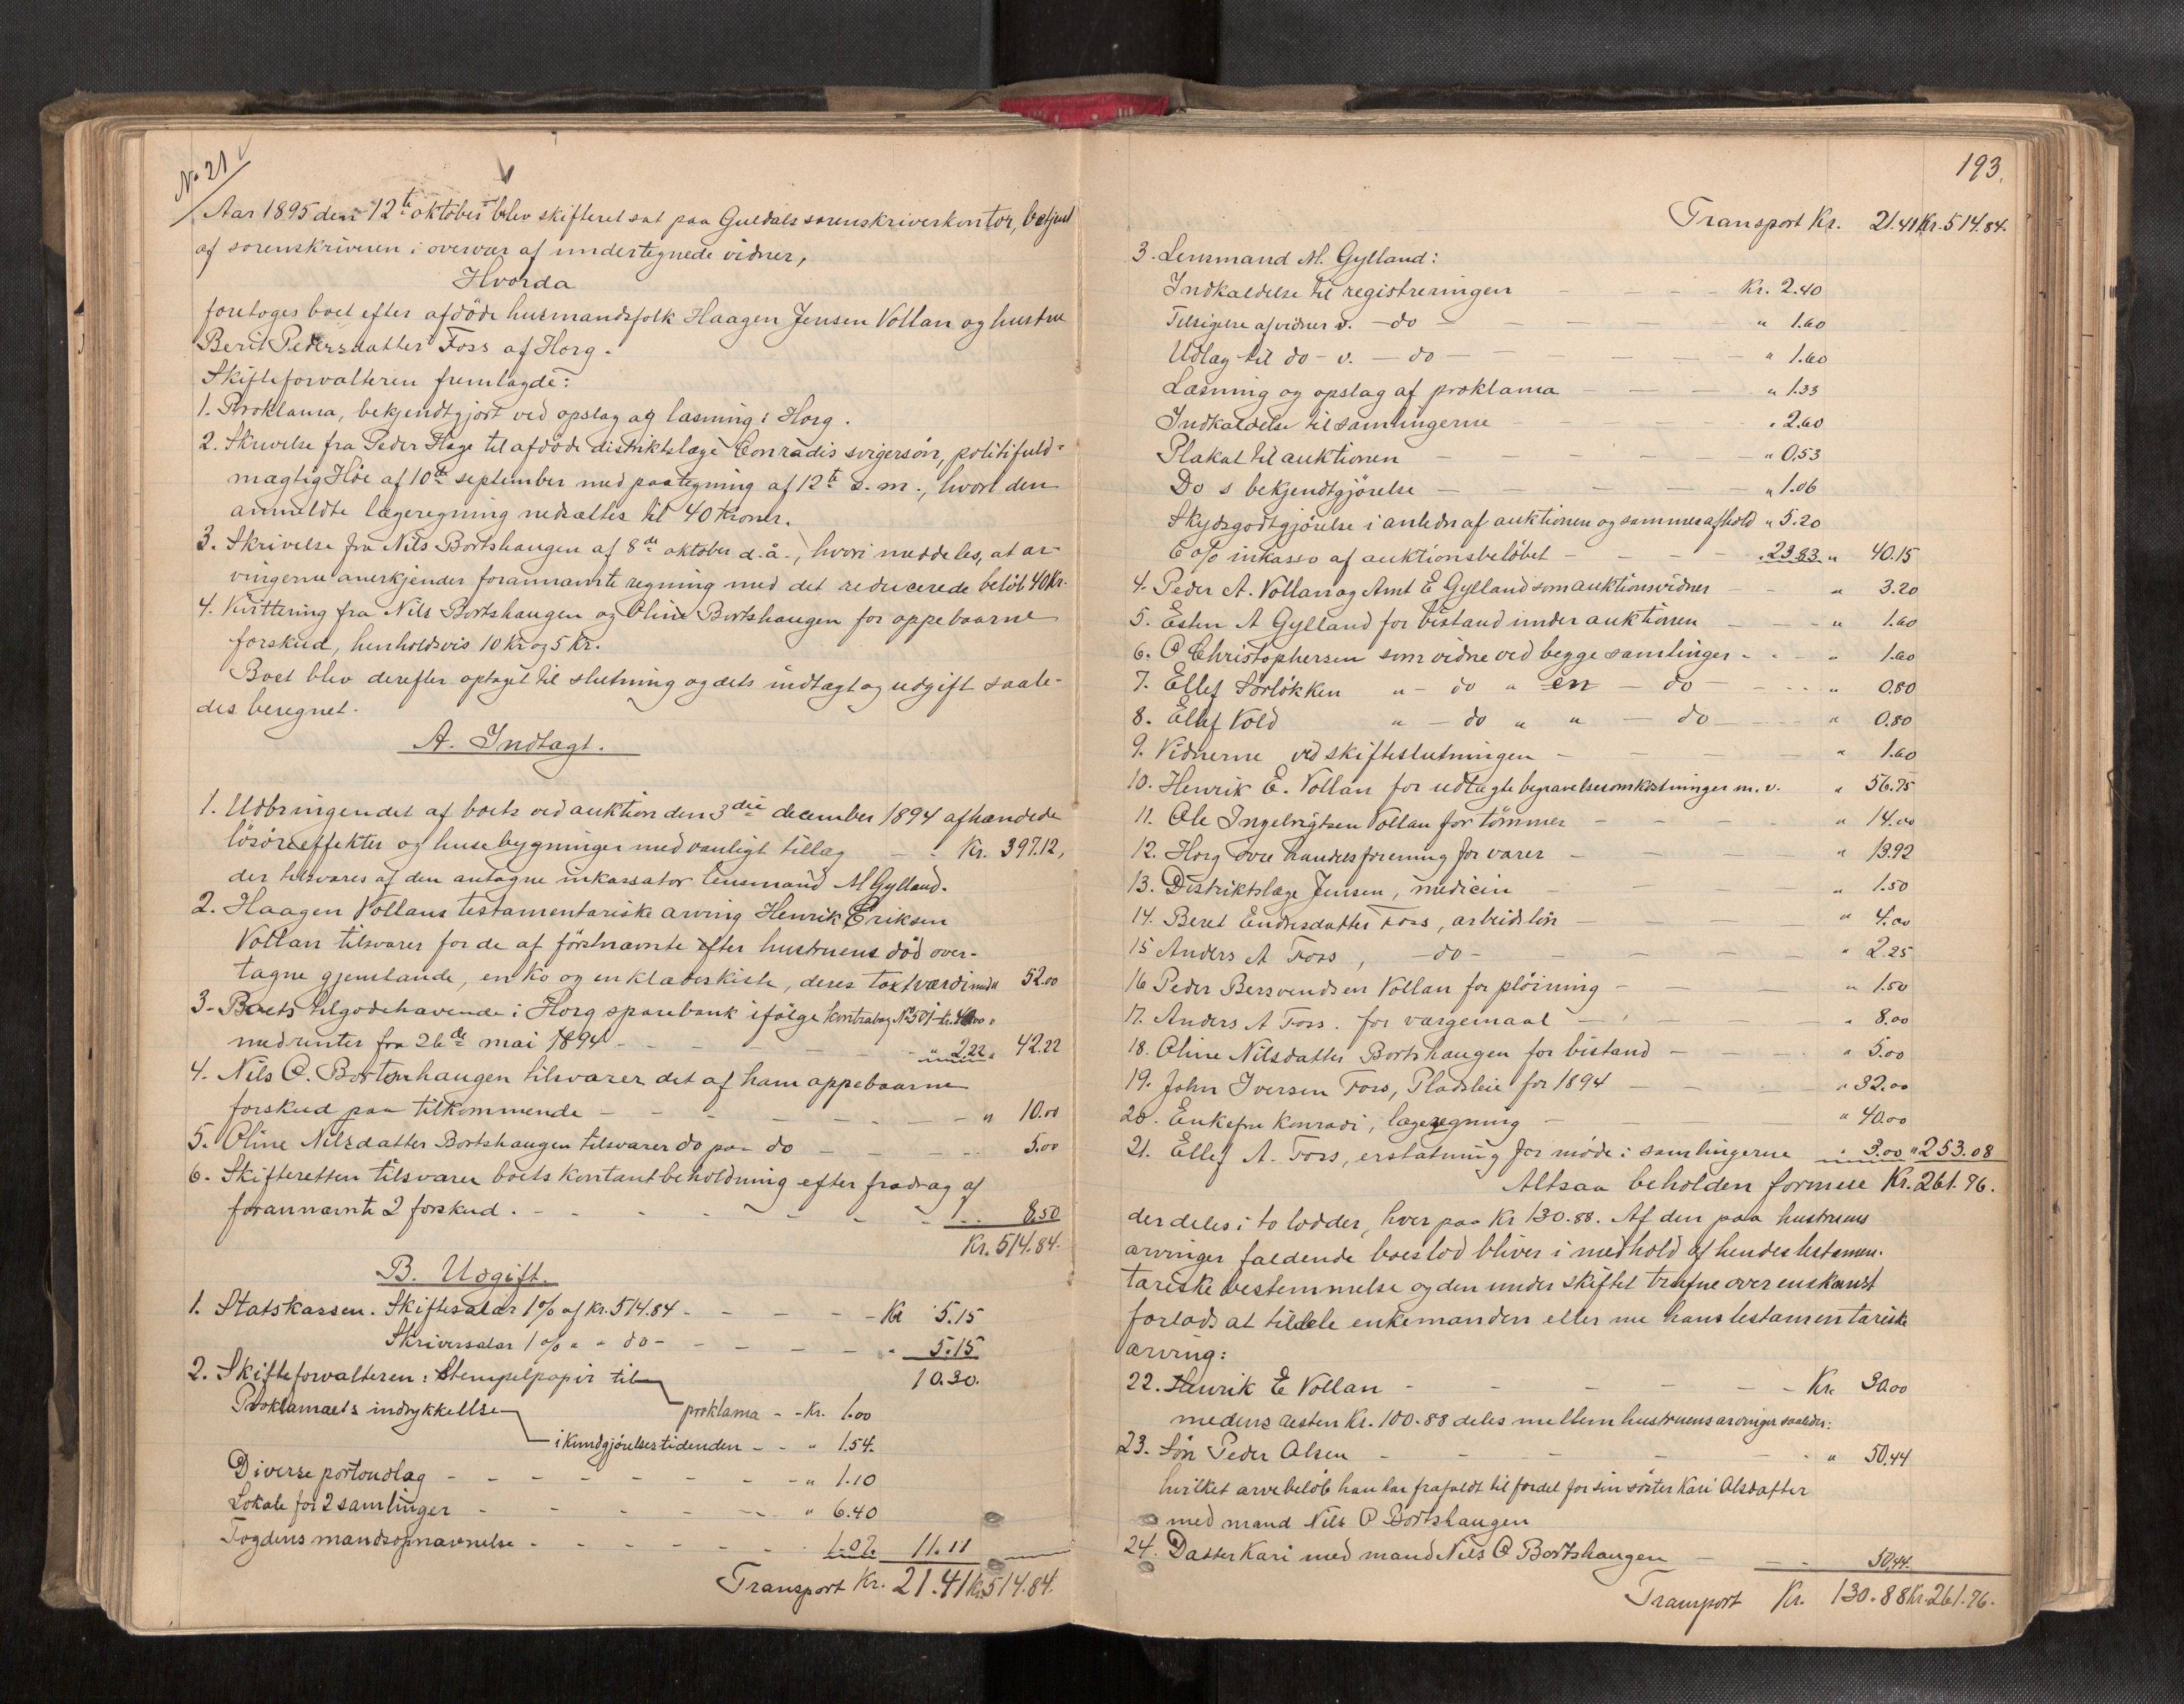 No 21
Aar 1895 den 12te oktober blev skifteret sat paa Guldals sorenskriverkontor, betjent
af sorenskriveren i overvær af undertegnede vidner,
Hvorda
foretoges boet efter afdöde husmandsfolk Haagen Jensen Vollan og hustru
Berit Pedersdatter Foss af Horg.
Skifteforvalteren fremlagde:
1. Proklama, bekjendtgjort ved opslag og læsning i Horg.
2. Skrivelse fra Peder Hage til afdöde distriktslæge Conradis svigersön, politifuld-
mægtig Höe af 10de september med paategning af 12te s. m., hvori den
anmeldte lægeregning nedsættes til 40 kroner.
3. Skrivelse fra Nils Bortshaugen af 8de oktober d. å., hvori meddeles, at ar-
vingerne anerkjender forannævnte regning med det reducerede belöb 40 Kr.
4. Kvittering fra Nils Bortshaugen og Oline Bortshaugen for oppebaarne
forskud, henholdsvis 10 Kr og 5 Kr.
Boet blev derefter optaget til slutning og dets indtægt og udgift saale-
des beregnet.
A. Indtægt.
1. Udbringendet af boets ved auktion den 3die december 1894 afhændede
lösöreeffekter og husebygninger med vanligt tillæg - - Kr. 397.12,
der tilsvares af den antagne inkassator lensmand M Gylland.
2. Haagen Vollans testamentariske arving Henrik Eriksen
Vollan tilsvarer for de af förstnævnte efter hustruens död over-
tagne gjenstande, en ko og en klædeskiste, deres taxtværdi med " 52.00
3. Boets tilgodehavende i Horg sparebank ifölge kontrabog No 501 - kr. 40.00
med renter fra 26de mai 1894 - - - - " 2.22 " 42.22
4. Nils O. Bortshaugen tilsvarer det af ham oppebaarne
forskud paa tilkommende - - - - - " 10.00
5. Oline Nilsdatter Bortshaugen tilsvarer do paa do - - - 5.00
6. Skifteretten tilsvarer boets kontantbeholdning efter fradrag af
forannævnte 2 forskud. - - - - - 8.50
Kr. 514.84.
B. Udgift.
1. Statskassen. Skiftesalær 1% af Kr. 514.84 - - - - Kr 5.15
Skriversalær 1% " " do - - - - " 5.15
10.30.
2. Skifteforvalteren: Stempelpapir til
proklama - - Kr. 1.00
Proklamaets indrykkelse
i kundgjörelsestidenden - - " 1.54.
Diverse portoudlæg - - - - - - " 1.10
Lokale for 2 samlinger - - - - - " 6.40
Fogdens mandsopnævnelse - - - - - 1.07. 11.11
Transport Kr. 21.41 Kr. 514.84.
193.
Transport Kr. 21.41 Kr. 514.84.
3. Lensmand M. Gylland:
Indkaldelse til registreringen - - - - Kr. 2.40
Tilsigelse af vidner v. - do - - - - " 1.60
Udlæg til do - v. - do - - - - " 1.60
Læsning og opslag af proklama - - - " 1.33
Indkaldelse til samlingerne - - - " 2.60
Plakat til auktionen - - - - " 0,53
Do s bekjendtgjörelse - - - - " 1.06
Skydsgodtgjörelse i anledn af auktionen og sammes afhold " 5.20
6 o/o inkasso af auktionsbelöbet - - - " 23.83 " 40.15
4. Peder A. Vollan og Arnt E Gylland som auktionsvidner - - " 3.20
5. Esten A Gylland for bistand under auktionen - - - " 1.60
6. O Christophersen som vidne ved begge samlinger - - - " 1.60
7. Ellef Sörlökken " - do " en - do - - - - " 0.80
8. Ellef Vold " - do " " - do - - - " 0.80
9. Vidnerne ved skifteslutningen - - - - " 1.60
10. Henrik E. Vollan for udlagte begravelsesomkostninger m. v. " 56.75
11. Ole Ingebrigtsen Vollan for tömmer - - - - " 14.00
12. Horg övre handelsforening for varer - - - " 13.92
13. Distriktslæge Jensen, medicin - - - " 1.50
14. Beret Endresdatter Foss, arbeidslön - - - " 4.00
15 Anders A Foss, - do - - - - - " 2.25
16 Peder Bersvendsen Vollan for plöining - - - " 1.50
17. Anders A Foss. for værgemaal - - - - " 8.00
18. Oline Nilsdatter Bortshaugen for bistand - - - " 5.00
19. John Iversen Foss, Pladsleie for 1894 - - - " 32.00
20. Enkefru Konradi, lægeregning - - - " 40.00
21. Ellef A. Foss, erstatning for möde i samlingerne " 3.00 " 253.08
Altsaa beholden formue Kr. 261.76.
der deles i to lodder, hver paa Kr 130.88. Af den paa hustruens
arvinger faldende boeslod bliver i medhold af hendes testamen-
tariske bestemmelse og den under skiftet trufne overenskomst
forlods at tildele enkemanden eller nu hans testamentariske
arving:
22. Henrik E Vollan - - - - - Kr. 30.00
medens resten Kr. 100.88 deles mellem hustruens arvinger saaledes:
23. Sön Peder Olsen - - - - - " 50,44
hvilket arvebelöb han har frafaldt til fordel for sin söster Kari Olsdatter
med mand Nils O Bortshaugen
24. Datter Kari med mand Nils O Bortshaugen - - - 50,44.
Transport Kr. 130.88 Kr. 261.76.